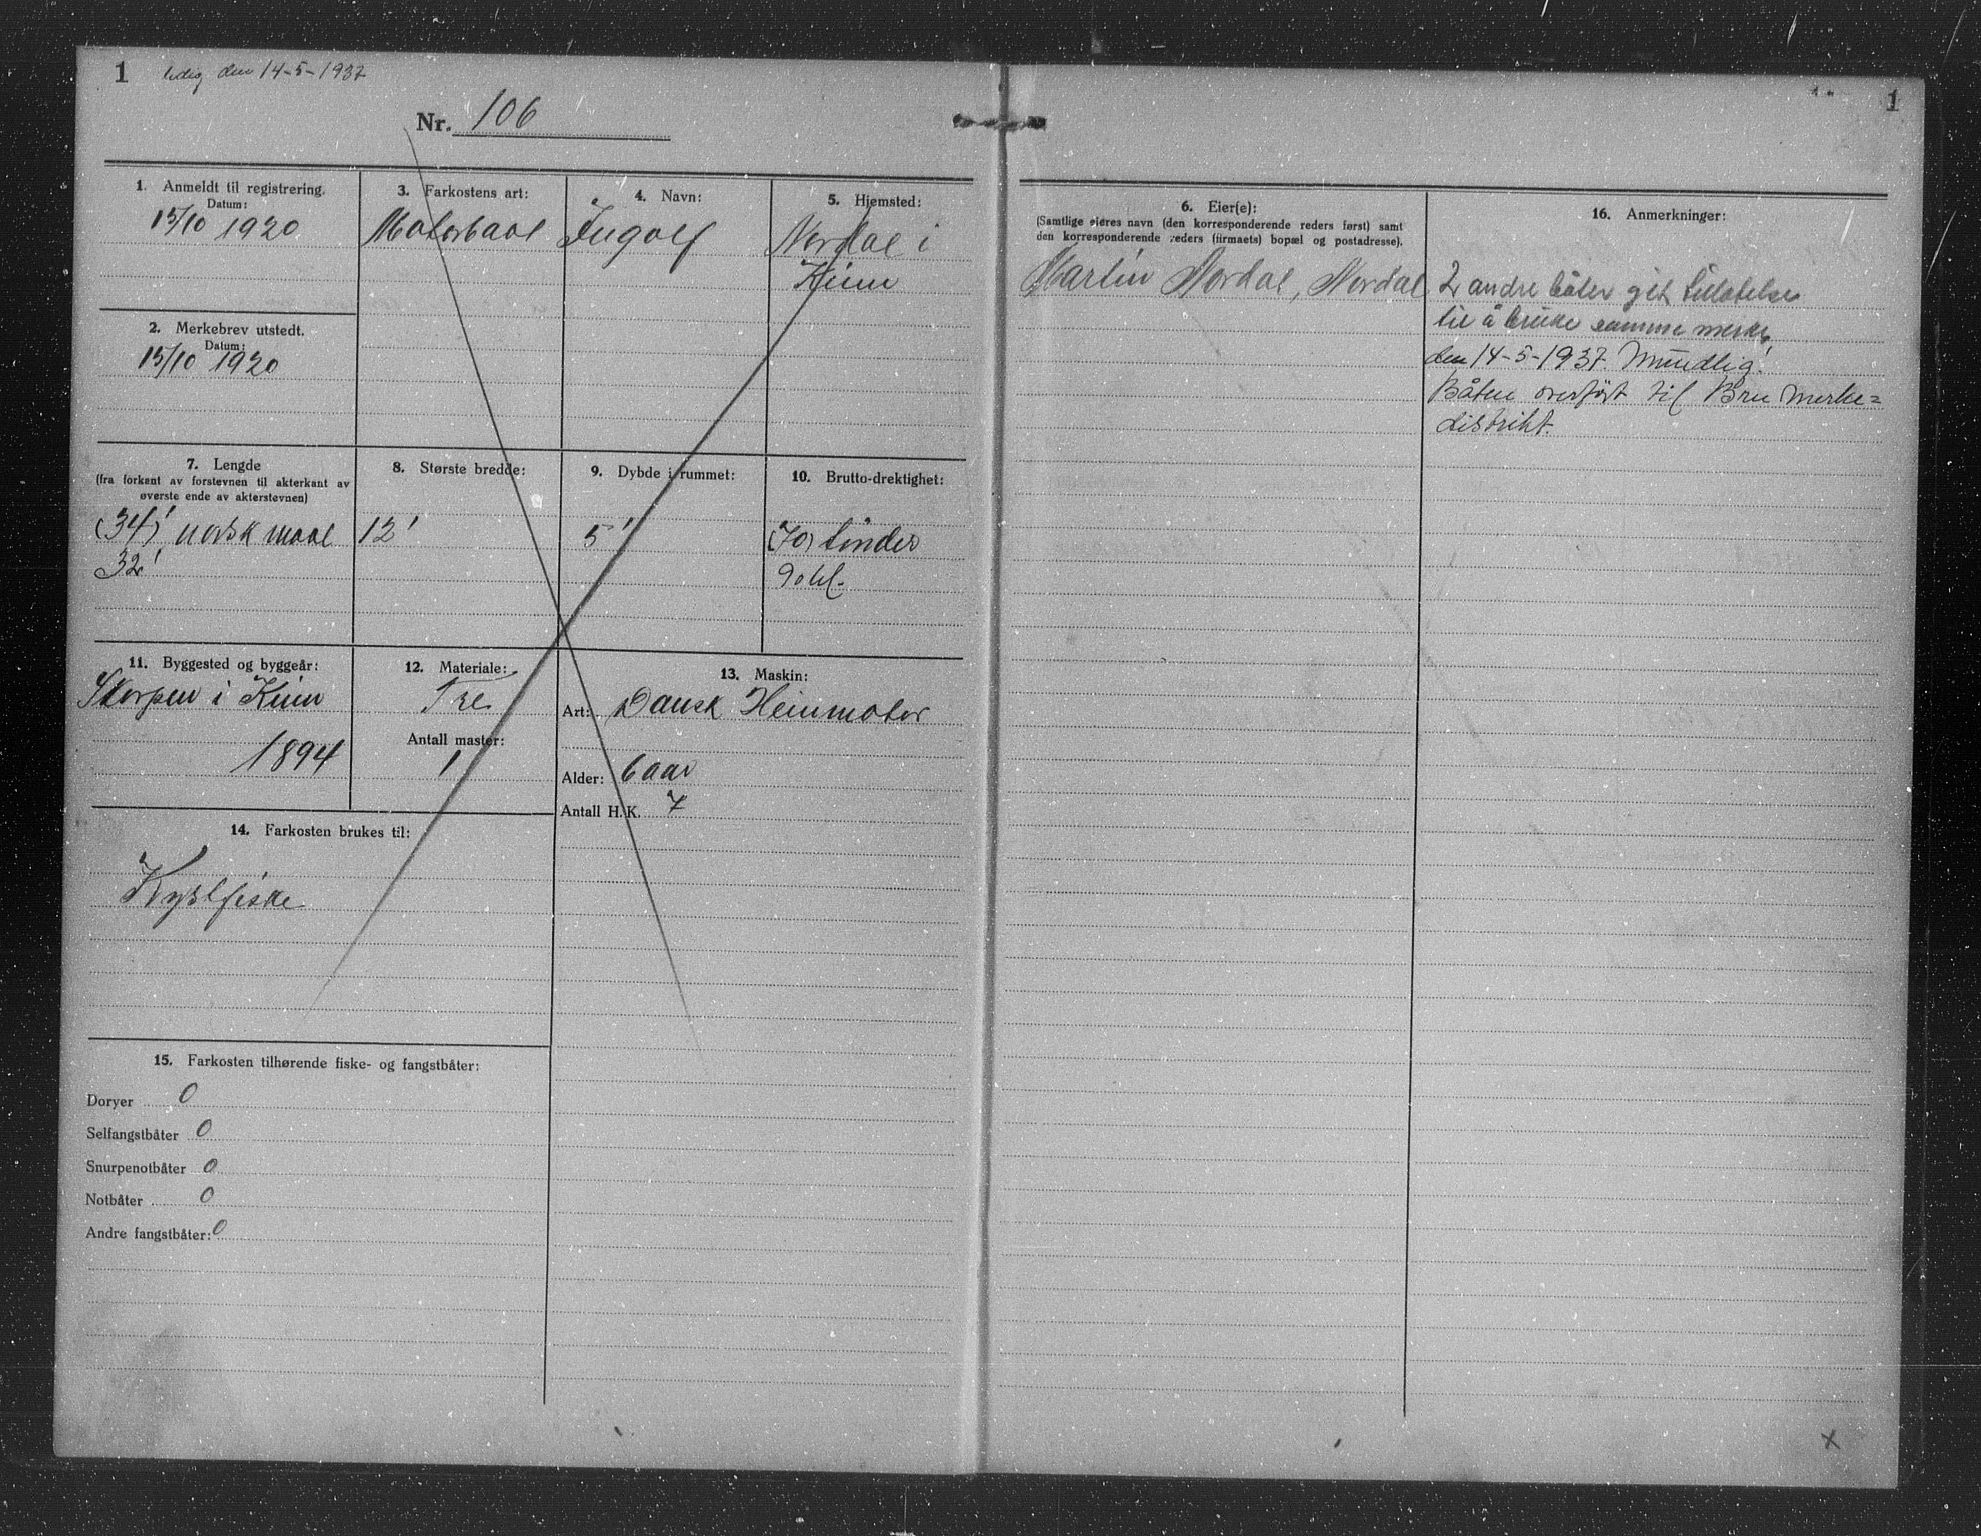 1 ledig den 14-5-1937
Nr. 106
1. Anmeldt til registrering.
Datum:
15/10 1920
2. Merkebrev utstedt.
Datum:
15/10 1920
3. Farkostens art:
Motorbaat
4. Navn:
Ingolf
5. Hjemsted:
Nordal i
Kinn
7. Lengde
(fra forkant av forstevnen til akterkant av
øverste ende av akterstevnen)
(34)' norsk maal
32'
8. Største bredde:
12'
9. Dybde i rummet:
5'
10. Brutto-drektighet:
(70) tønder
90 hl.
11. Byggested og byggeår:
Skorpen i Kinn
1894
12. Materiale:
Tre
Antall master:
1
13. Maskin:
Art: Dansk Heinmotor
Alder: 6 aar
Antall H.K. 7
14. Farkosten brukes til:
Kystfiske
15. Farkosten tilhørende fiske- og fangstbåter:
Doryer 0
Selfangstbåter 0
Snurpenotbåter 0
Notbåter 0
Andre fangstbåter: 0
1
6. Eier(e):
(Samtlige eieres navn (den korresponderende reders først) samt
den korresponderende reders (firmaets) bopæl og postadresse).
Martin Nordal, Nordal
16. Anmerkninger:
2 andre båter git tillatelse
til å bruke samme merke,
den 14-5-1937. Mundlig!
Båten overført til Bru merke=
distrikt.
x